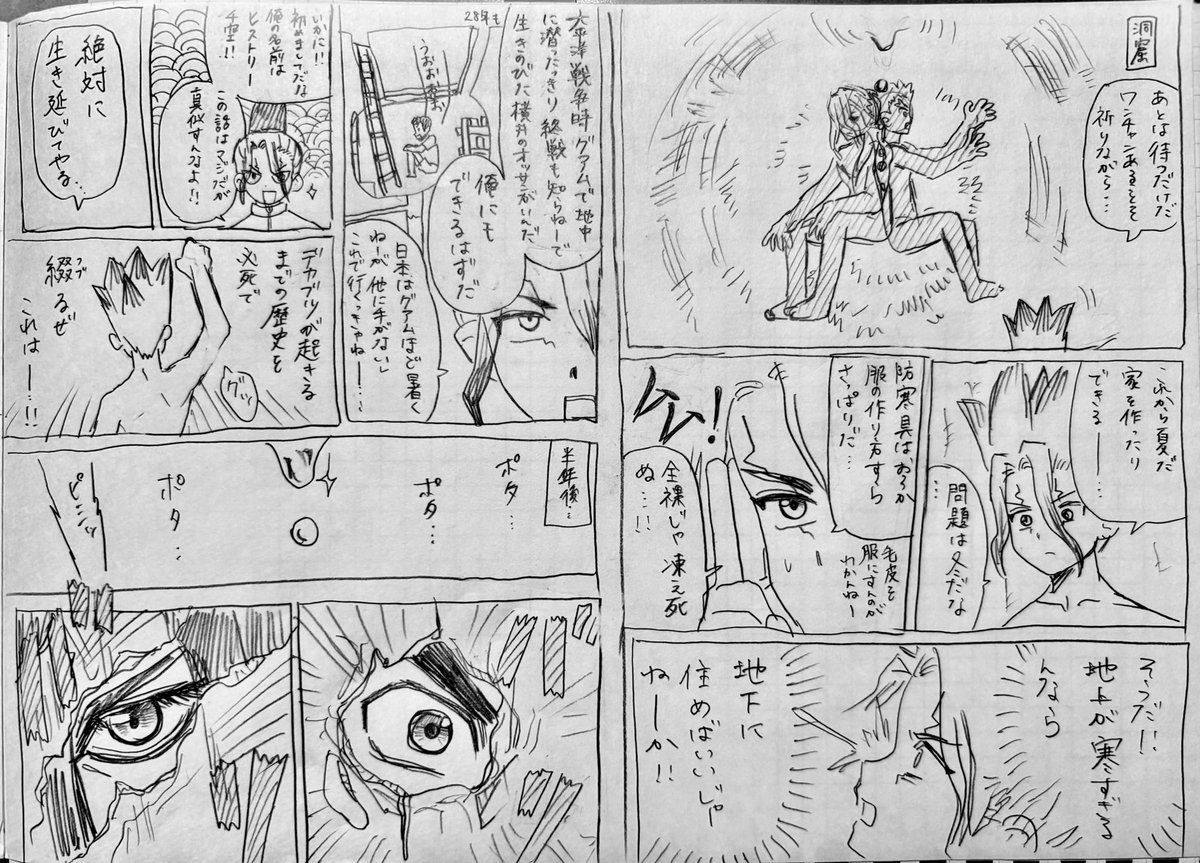 洞窟
あとは待つだけだ
ワンチャンあるこそ
祈りながら…
これから夏だ
家を作ったり
できる——…
問題は冬だな
…
防寒具はおろか
服の作り方すら
さっぱりだ…
毛皮を
服にすんのが
わかんねー
全裸じゃ凍え死
ぬ…!!
そうだ!!
地上が寒すぎる
んなら
地下に
住めばいいじゃ
ねーか!!
太平洋戦争時グアムで地中
に潜ったっきり終戦も知らねーで
28年も
生きのびた横井のオッサンがいんだ
うおお寒い
俺にも
できるはずだ
日本はグアムほど暑く
ねーが他に手がないし
これで行くっきゃねー…
いかに!!
初めましてだな
俺の名前は
ヒストリー
千空!!
この話はマジだが
真似すんなよ!!
絶対に
生き延びてやる…
デカブツが起きる
までの歴史を
必死で
綴るぜ
ツヅ
これは——…!!
グッ
半年後…
ポタ…
ポタ…
ポタ…
ピシッ